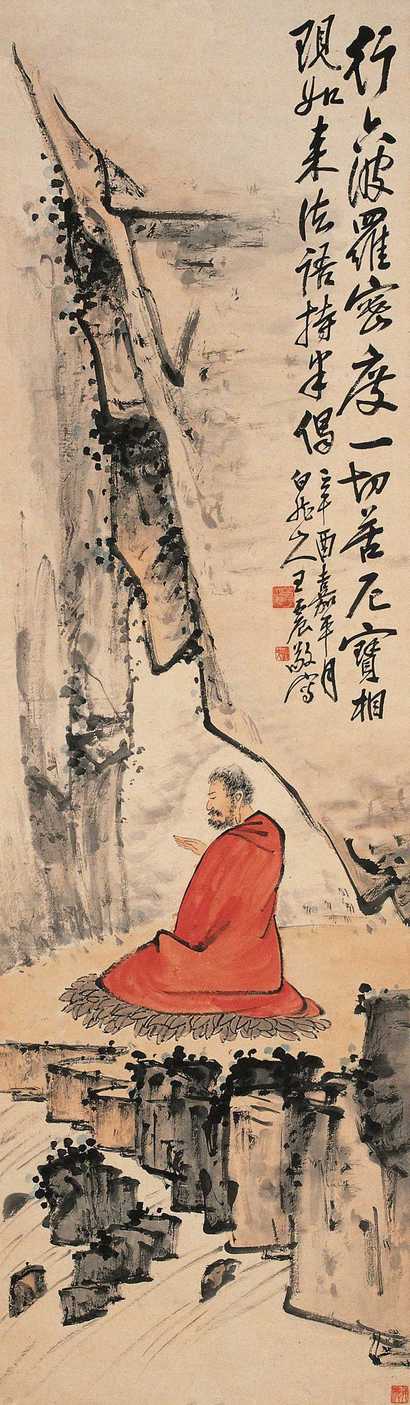 行六波羅密度一切苦厄寶相
現如来法語持半偈
辛酉嘉平月
白龍山人王震敬寫